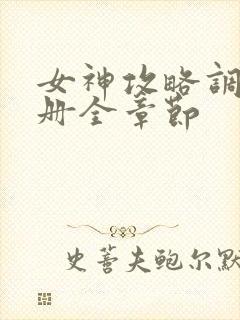 女神攻略調
册全章節
史蒈夫鲍尔默